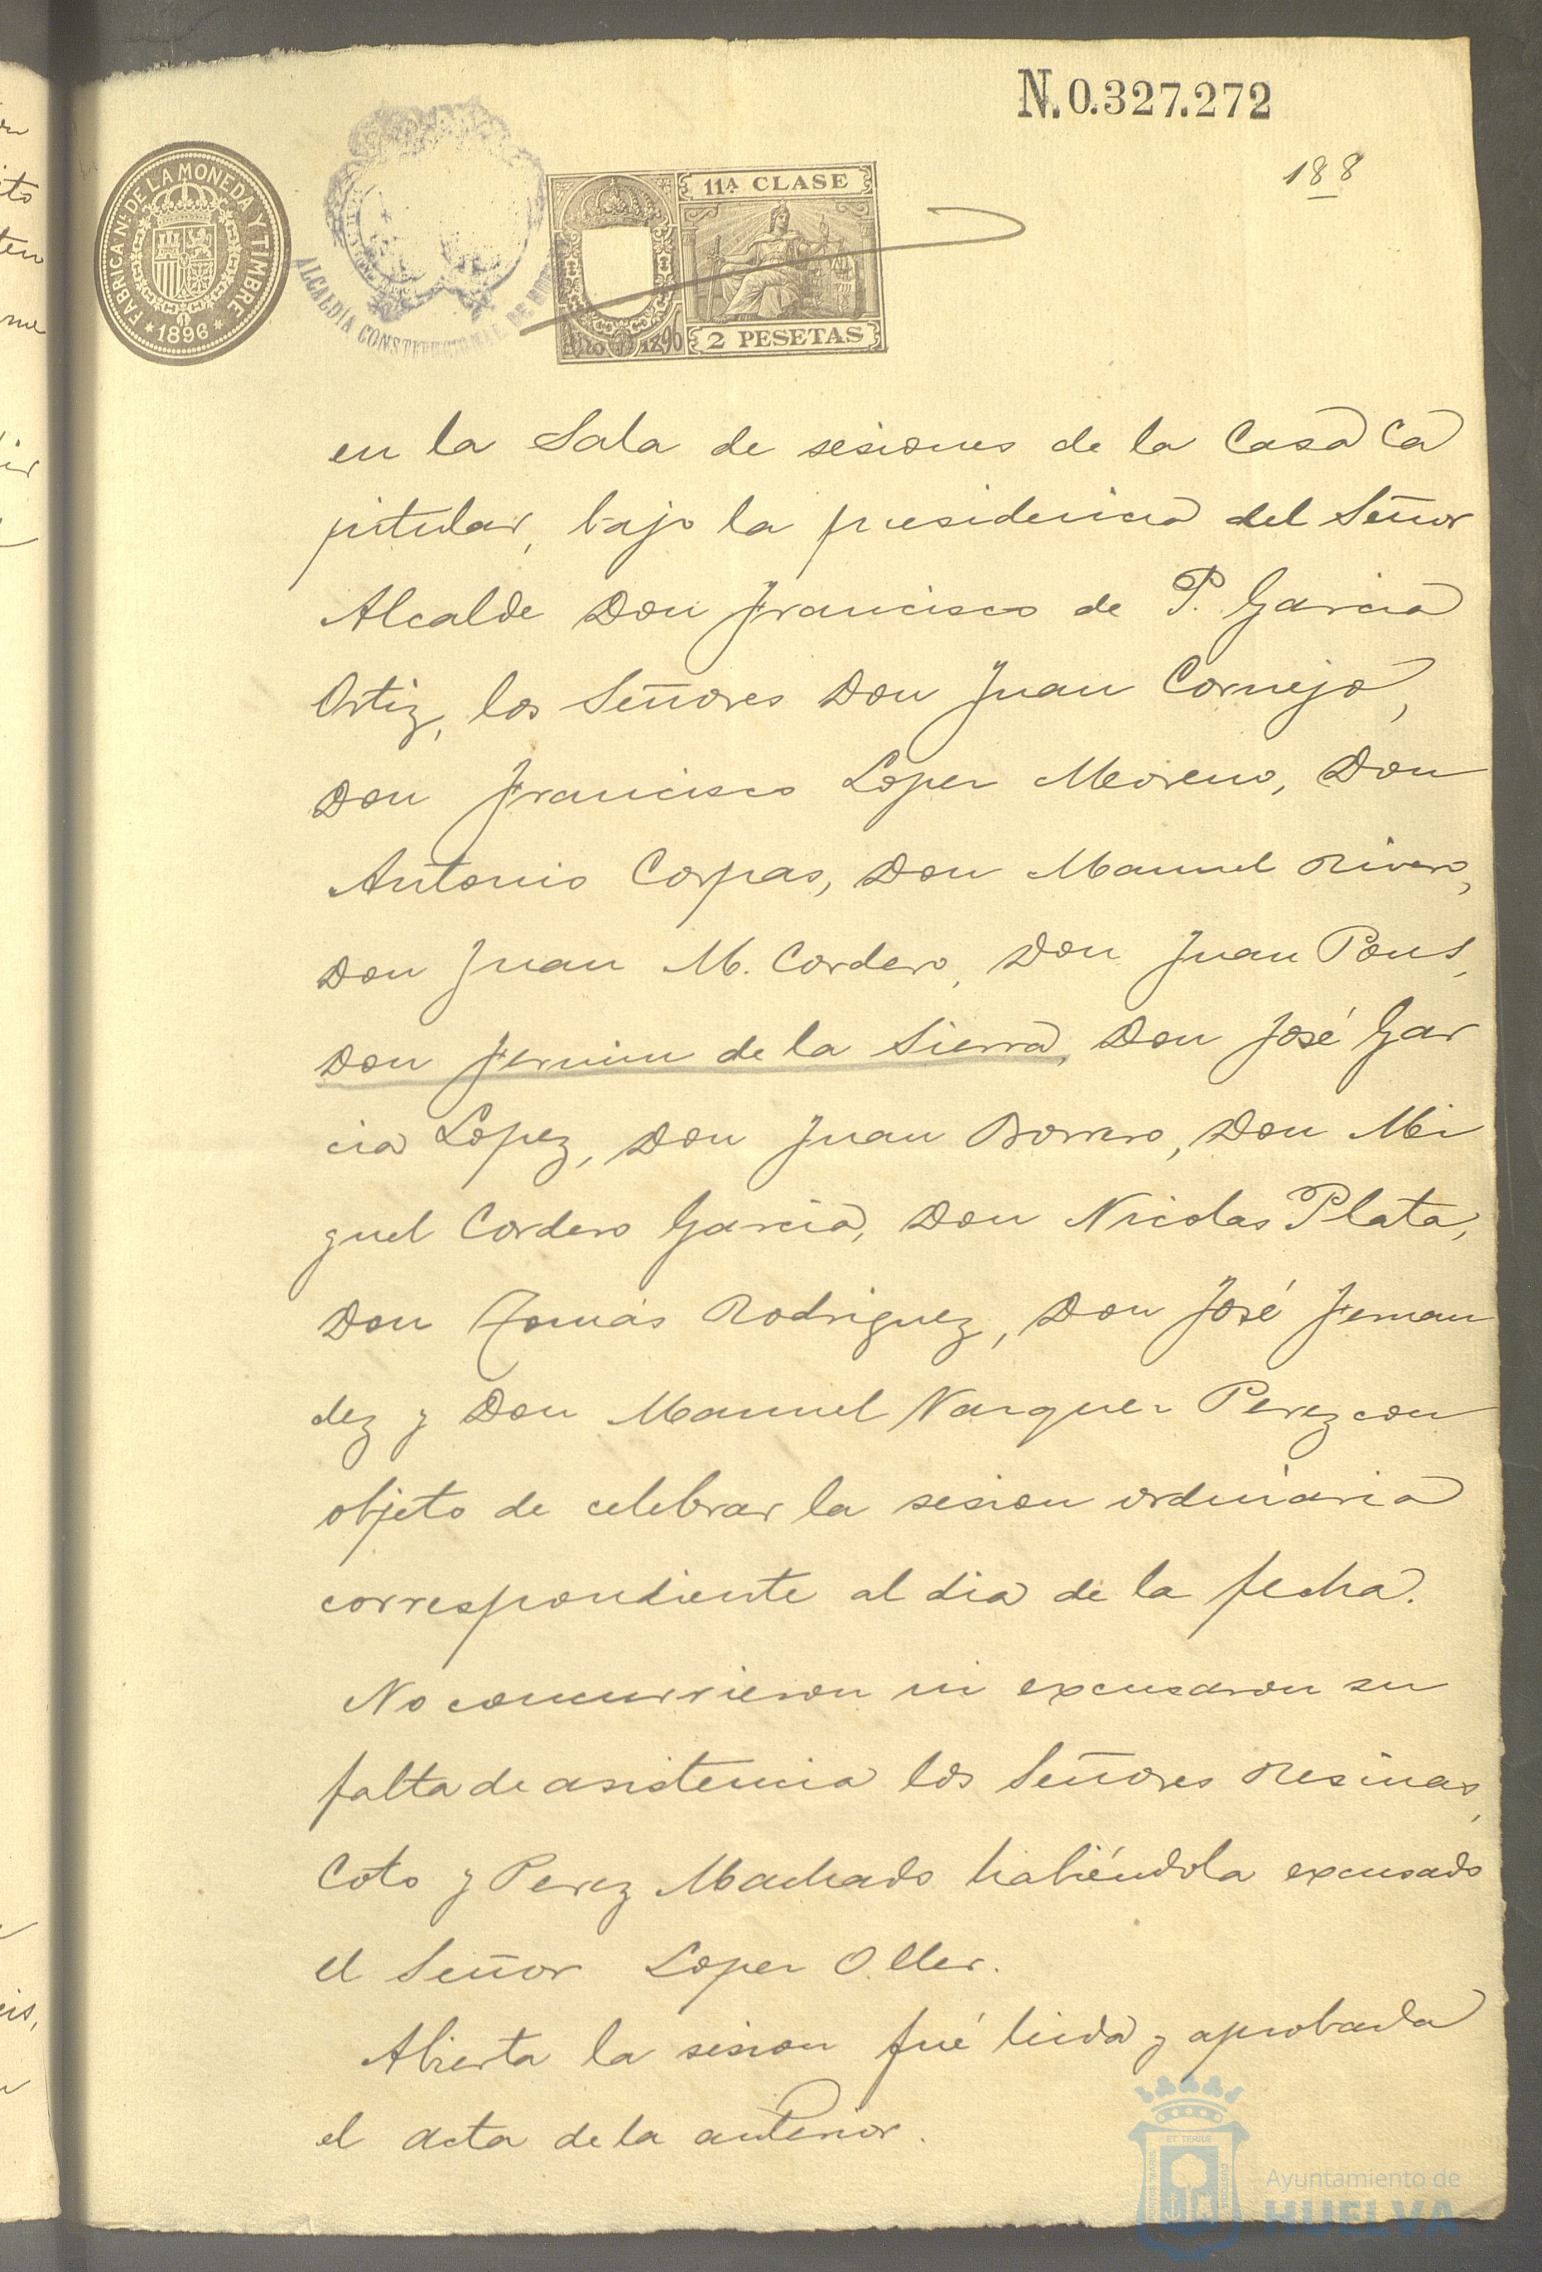 N. 0.327.272
188
FABRICA Nᴸ DE LA MONEDA Y TIMBRE
1896
ALCALDÍA CONSTITUCIONAL DE
11ᴬ CLASE
1896
2 PESETAS
en la Sala de sesiones de la Casa Ca
pitular, bajo la presidencia del Señor
Alcalde Don Francisco de P. Garcia
Ortiz, los Señores Don Juan Cornejo,
Don Francisco Lopez Moreno, Don
Antonio Corpas, Don Manuel Rivero,
Don Juan M. Cordero, Don Juan Pons,
Don Fermin de la Sierra, Don José Gar
cia Lopez, Don Juan Borrero, Don Mi
guel Cordero Garcia, Don Nicolas Plata,
Don Tomás Rodriguez, Don José Fernan
dez y Don Manuel Vazquez Perez con
objeto de celebrar la sesion ordinaria
correspondiente al dia de la fecha.
No concurrieron ni excusaron su
falta de asistencia los Señores Resinas,
Coto y Perez Machado habiéndola excusado
el Señor Lopez Oller.
Abierta la sesion fué leida y aprobada
el acta de la anterior.
Ayuntamiento de
HUELVA